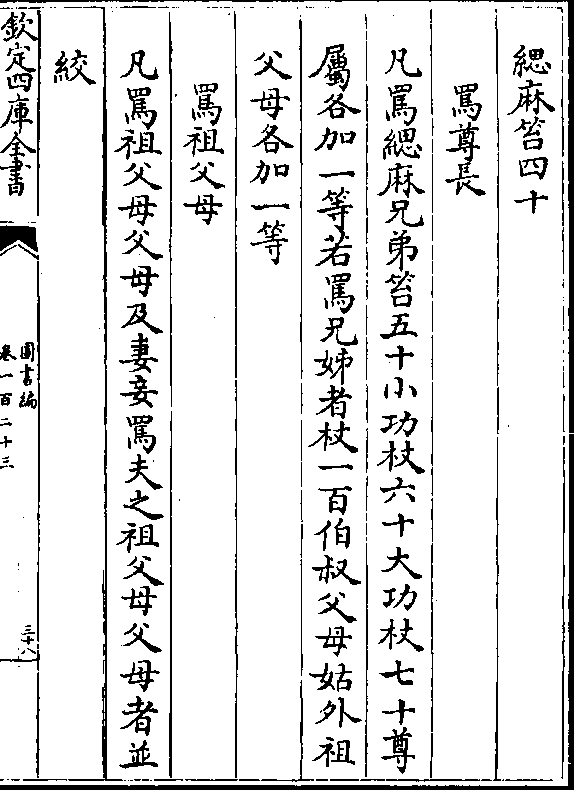 緦麻笞四十
罵尊長
凡罵緦麻兄弟笞五十小功杖六十大功杖七十尊
屬各加一等若罵兄姊者杖一百伯叔父母姑外祖
父母各加一等
罵祖父母
凡罵祖父母父母及妻妾罵夫之祖父母父母者並
絞
欽定四庫全書
圖書編
卷一百二十三
三十八